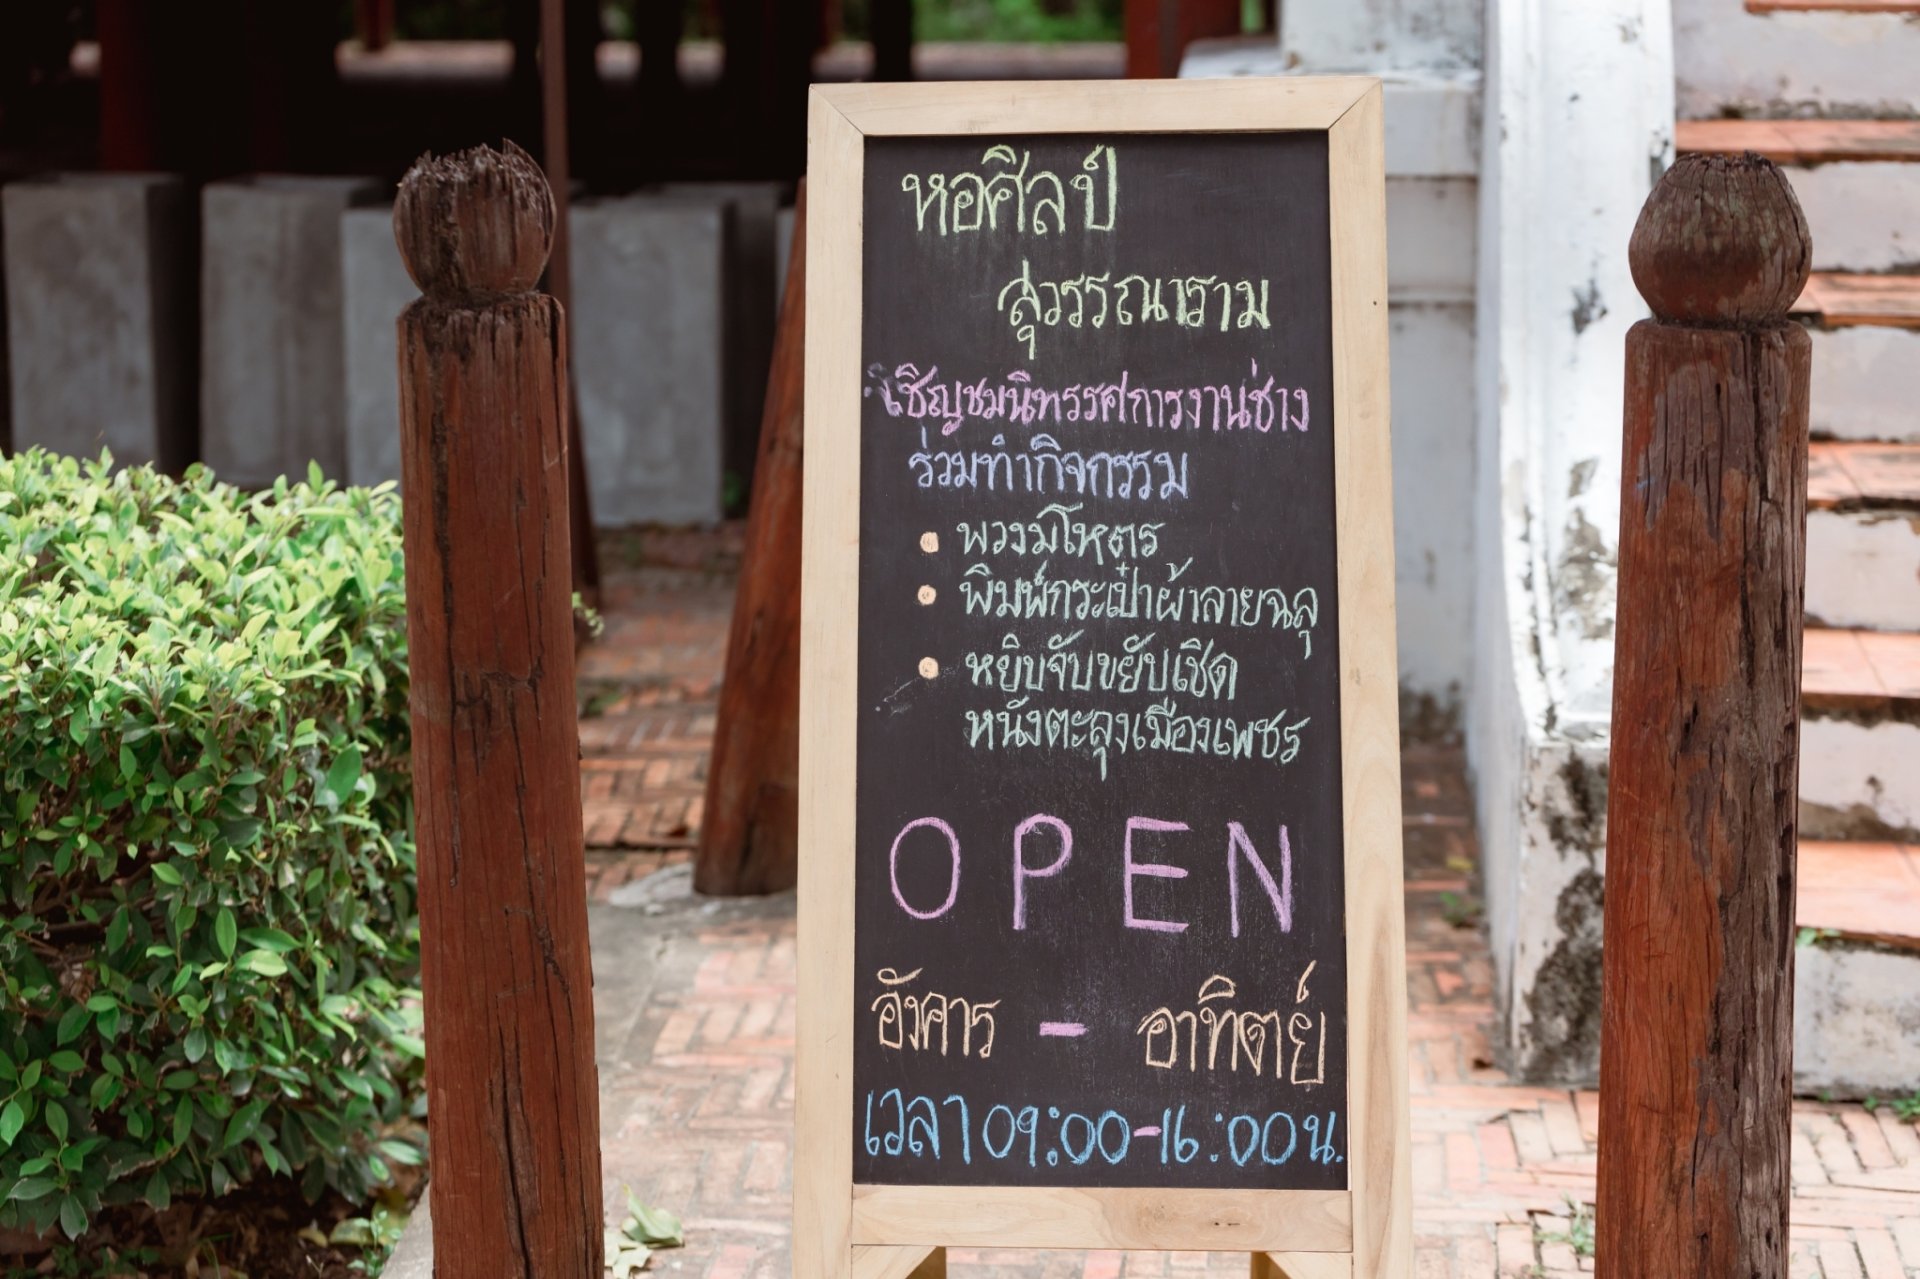 หอศิลป์
สุวรรณาราม
เชิญชมนิทรรศการงานช่าง
ร่วมทำกิจกรรม
• พวงมโหตร
• พิมพ์กระเป๋าผ้าลายฉลุ
• หยิบจับขยับเชิด
หนังตะลุงเมืองเพชร
OPEN
อังคาร - อาทิตย์
เวลา 09:00-16:00 น.